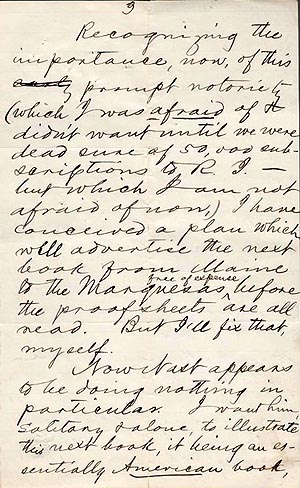 3
Recognizing the
importance, now, of this
early prompt notoriety
(which I was afraid of &
didn't want until we were
dead sure of 50,000 sub-
scriptions to R. I. —
but which I am not
afraid of now,) I have
conceived a plan which
will advertise the next
book from Maine
to the Marquesas, free of expense, before
the proofsheets are all
read. But I'll fix that,
myself.
Now Nast appears
to be doing nothing in
particular. I want him,
solitary & alone, to illustrate
this next book, it being an es-
sentially American book,